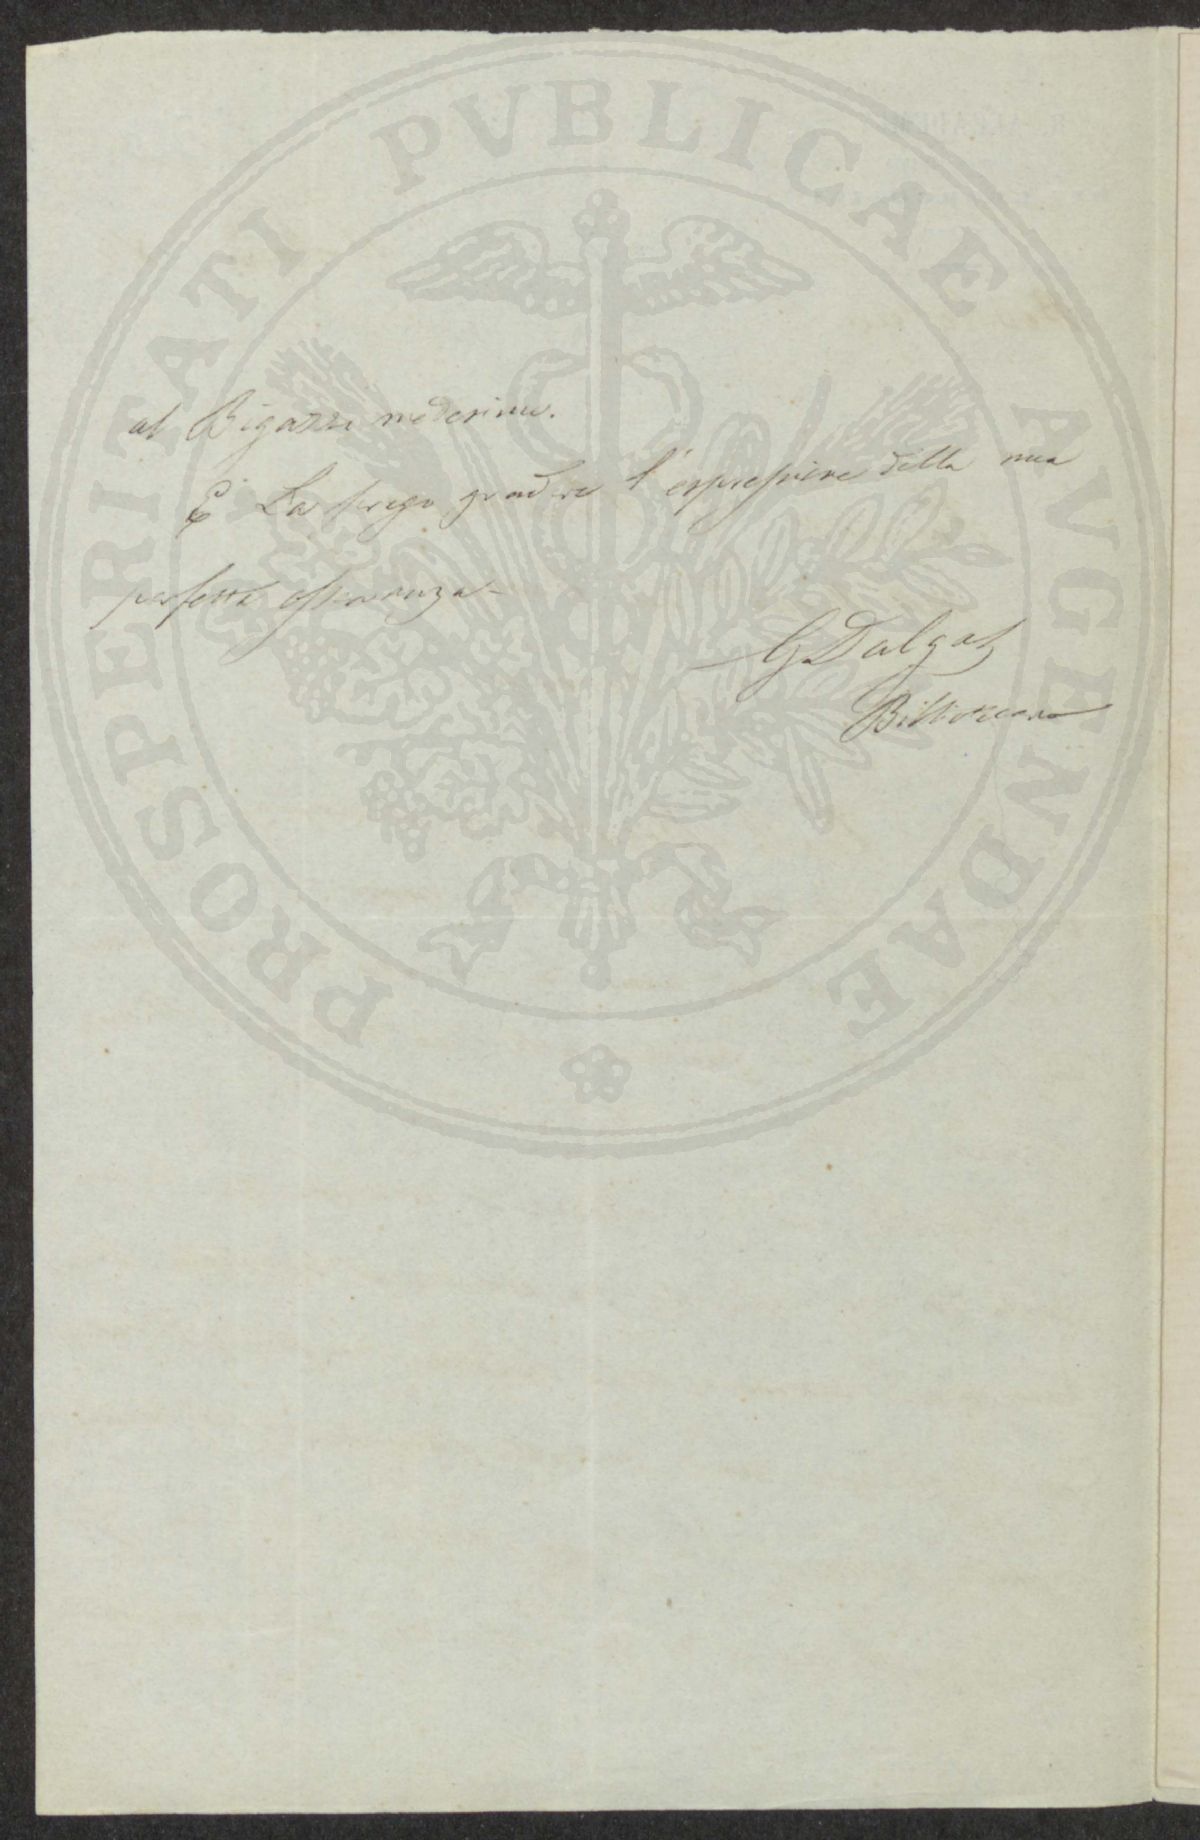 al Bigazzi medesimo.
E La prego gradire l'espressione della mia
perfetta osservanza
G Dalgas
Bibliotecario
PROSPERITATI PVBLICAE AVGENDAE